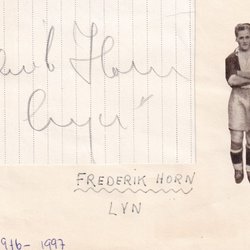 Horn
Lyn
FREDERIK HORN
LYN
1916- 1997